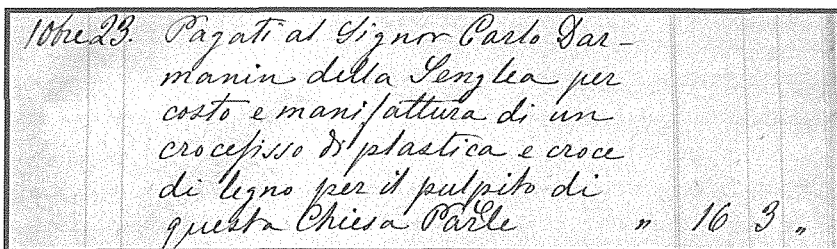 10bre 23. Pagati al Signor Carlo Dar-
manin della Senglea per
costo e manifattura di un
crocefisso di plastica e croce
di legno per il pulpito di
questa Chiesa Parle " 16 3 "